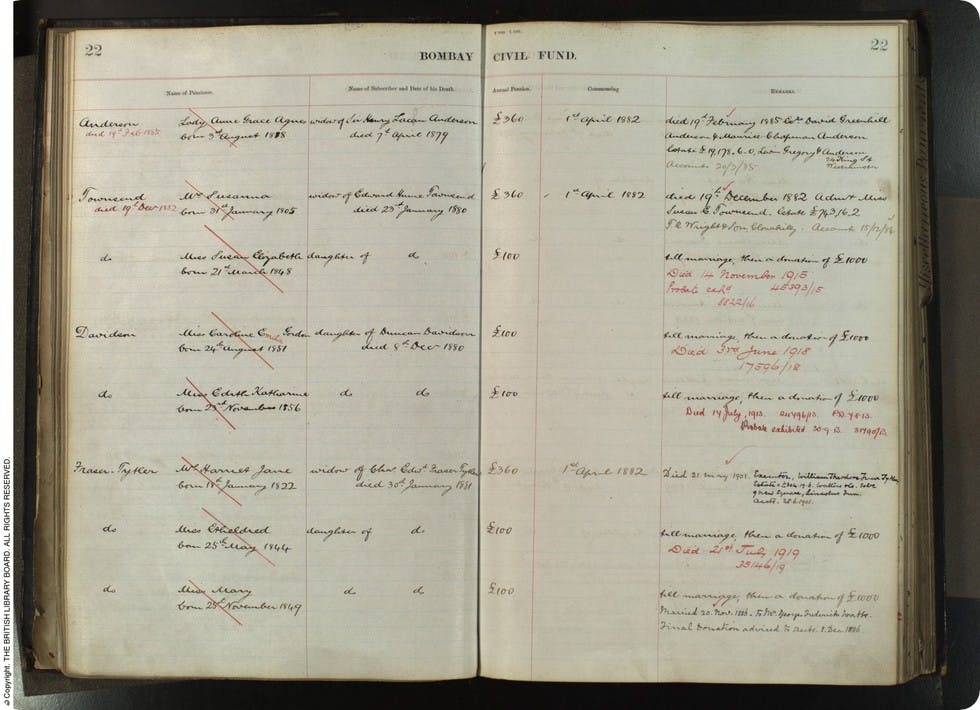 © Copyright. THE BRITISH LIBRARY BOARD. ALL RIGHTS RESERVED.
22
BOMBAY CIVIL FUND.
22
Name of Pensioner.
Name of Subscriber and Date of his Death.
Annual Pension.
Commencing
REMARKS.
Anderson
died 19th Feb 1885
Lady Anne Grace Agnes
born 3rd August 1818
widow of Sir Henry Lacon Anderson
died 7th April 1879
£360
1st April 1882
died 19th February 1885 Exrs David Greenhill
Anderson & Maurice Chapman Anderson
Estate £19,178.6.0, Lavie Gregory & Anderson
24 King St
Westminster
Accounts 20/3/85
Townsend
died 19th Dec 1882
Mrs Susanna
born 31st January 1805
widow of Edward Hume Townsend
died 23rd January 1880
£360
1st April 1882
died 19th December 1882 Admx Miss
Susan E. Townsend. Estate £743.16.2
Wright & Son, Clonakilty. Accounts 15/12/84
do
Miss Susan Elizabeth
born 21st March 1848
daughter of do
£100
till marriage, then a donation of £1000
Died 14 November 1915
Probate exhd 45393/15
8822/16
Davidson
Miss Caroline Emilia Gordon
born 24th August 1851
daughter of Duncan Davidson
died 8th Dec 1880
£100
till marriage, then a donation of £1000
Died 3rd June 1918
17596/18
do
Miss Edith Katharine
born 23rd November 1856
do do
£100
till marriage, then a donation of £1000
Died 14 July, 1913.
Probate exhibited 30.9.13. 31790/13.
Fraser-Tytler
Mrs Harriet Jane
born 18th January 1822
widow of Chas Edwd Fraser Tytler
died 30th January 1881
£360
1st April 1882
Died 21 May 1901.
Executor, William Theodore Fraser Tytler
9 New Square, Lincolns Inn.
do
Miss Etheldred
born 25th May 1844
daughter of do
£100
till marriage, then a donation of £1000
Died 21st July 1919
35146/19
do
Miss Mary
born 25th November 1849
do do
£100
till marriage, then a donation of £1000
Married 20. Nov. 1886. to Mr George Frederick Watts.
Final Donation advised to Accts. 8 Dec 1886.